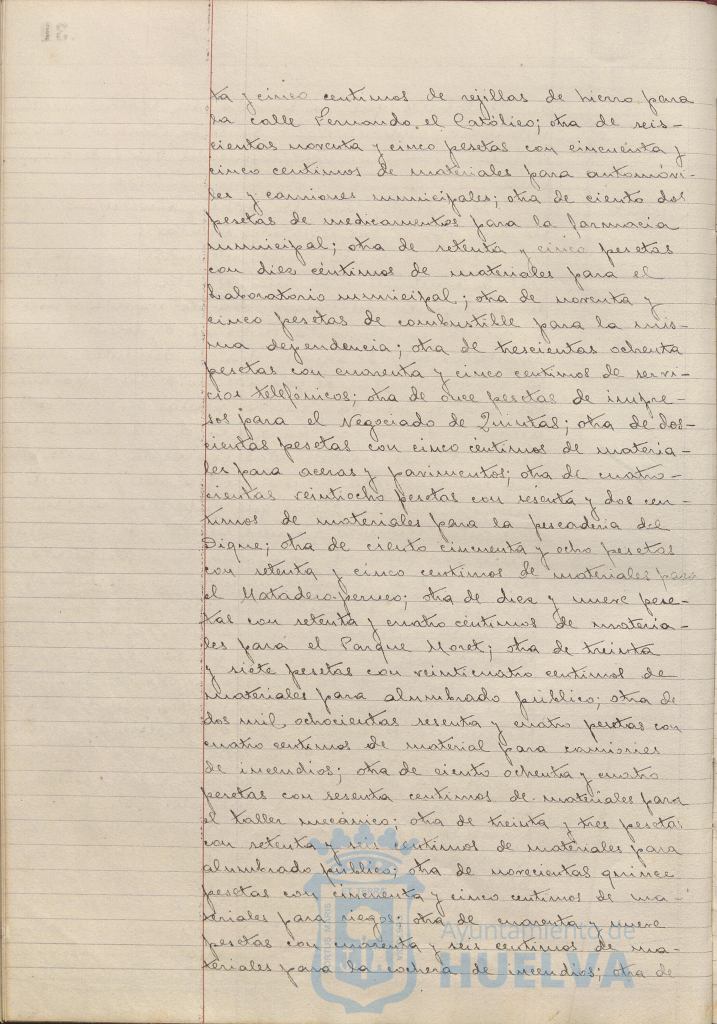 ta y cinco centimos de rejillas de hierro para
la calle Fernando el Católico; otra de seis-
cientas noventa y cinco pesetas con cincuenta y
cinco centimos de materiales para automóvi-
les y camiones municipales; otra de ciento dos
pesetas de medicamentos para la farmacia
municipal; otra de setenta y cinco pesetas
con diez céntimos de materiales para el
Laboratorio municipal; otra de noventa y
cinco pesetas de combustible para la mis-
ma dependencia; otra de trescientas ochenta
pesetas con cuarenta y cinco centimos de servi-
cios telefónicos; otra de once pesetas de impre-
sos para el Negociado de Quintas; otra de dos-
cientas pesetas con cinco céntimos de materia-
les para aceras y pavimentos; otra de cuatro-
cientas veintiocho pesetas con sesenta y dos cen-
timos de materiales para la pescaderia del
Dique; otra de ciento cincuenta y ocho pesetas
con setenta y cinco centimos de materiales para
el Matadero-perneo; otra de diez y nueve pese-
tas con setenta y cuatro céntimos de materia-
les para el Parque Moret; otra de treinta
y siete pesetas con veinticuatro centimos de
materiales para alumbrado público; otra de
dos mil ochocientas sesenta y cuatro pesetas con
cuatro centimos de material para camiones
de incendios; otra de ciento ochenta y cuatro
pesetas con sesenta centimos de materiales para
el taller mecánico; otra de treinta y tres pesetas
con setenta y seis centimos de materiales para
alumbrado público; otra de novecientas quince
pesetas con cincuenta y cinco centimos de ma-
teriales para riegos; otra de cuarenta y nueve
pesetas con cuarenta y seis centimos de ma-
teriales para la cochera de incendios; otra de
Ayuntamiento de
HUELVA